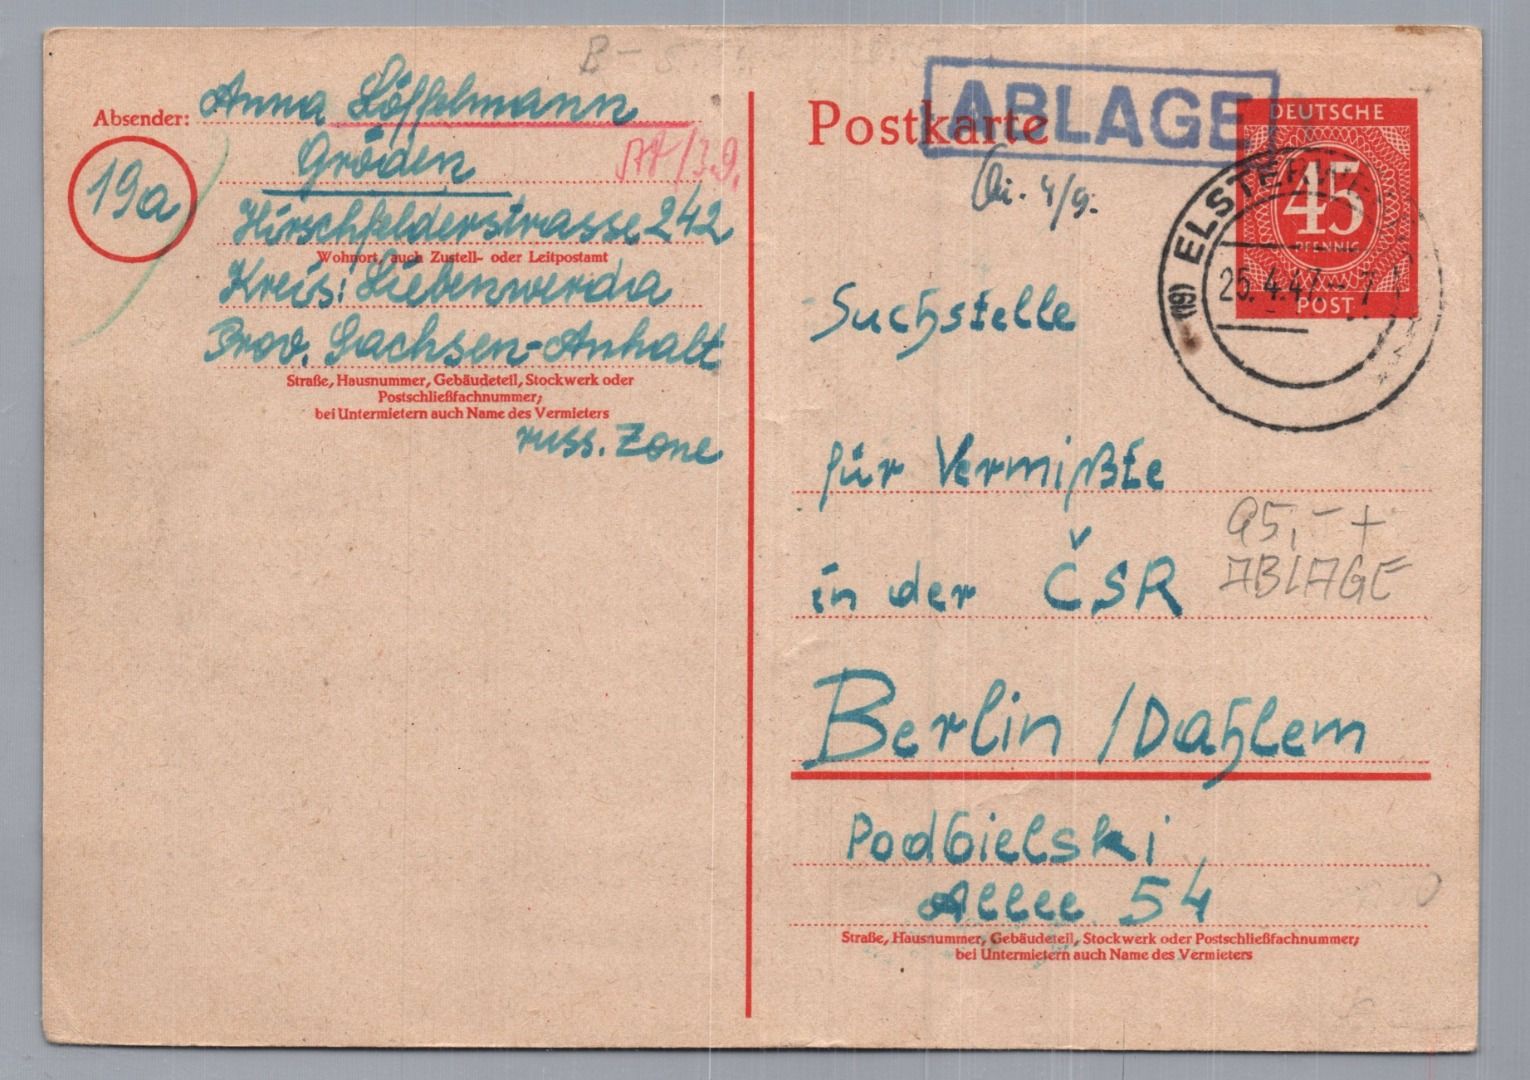 Absender: Anna Löffelmann
19a
Gröden
Hirschfelderstrasse 242
Wohnort, auch Zustell- oder Leitpostamt
Kreis: Liebenwerda
Prov. Sachsen-Anhalt
Straße, Hausnummer, Gebäudeteil, Stockwerk oder
Postschließfachnummer;
bei Untermietern auch Name des Vermieters
russ. Zone
Postkarte
ABLAGE
4/9.
DEUTSCHE
45
PFENNIG
POST
(19)
25.4.47
Suchstelle
für Vermißte
in der ČSR
95,- +
ABLAGE
Berlin / Dahlem
Podbielski
Allee 54
Straße, Hausnummer, Gebäudeteil, Stockwerk oder Postschließfachnummer;
bei Untermietern auch Name des Vermieters